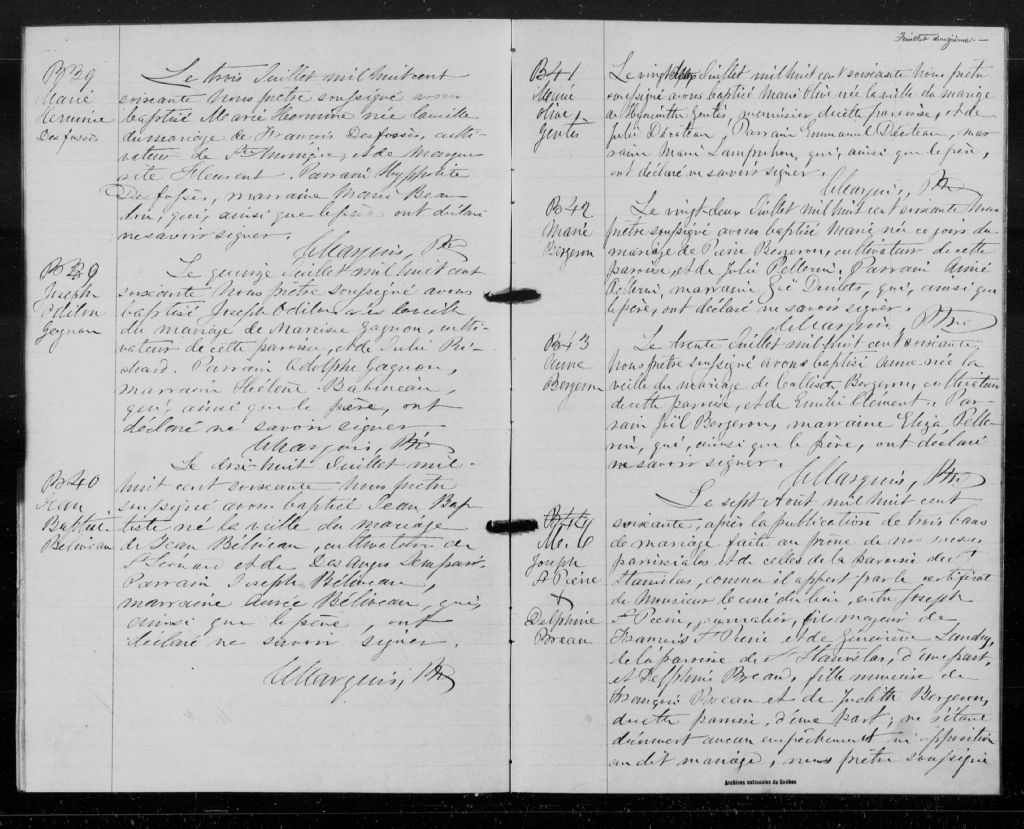 B 39
Marie
Hermine
Desfossés
Le trois Juillet mil huit cent
soixante Nous prêtre soussigné avons
baptisé Marie Hermine née la veille
du mariage de François Desfossés, culti-
vateur de Ste Monique, et de Margue
rite Fleurent. Parrain Hyppolite
Desfossés, marraine Marie Beau
qui, ainsi que le père ont déclaré
ne savoir signer.
CMarquis, Ptre
B 39
Joseph
Odilon
Gagnon
Le quinze Juillet mil huit cent
soixante Nous prêtre soussigné avons
baptisé Joseph Odilon né la veille
du mariage de Narcisse Gagnon, culti-
vateur de cette paroisse, et de Julie Ri-
chard. Parrain Adolphe Gagnon,
marraine Hélène Babineau,
qui, ainsi que le père, ont
déclaré ne savoir signer
CMarquis, Ptre
B 40
Jean
Baptiste
Béliveau
Le dix huit Juillet mil
huit cent soixante Nous prêtre
soussigné avons baptisé Jean Bap
tiste né la veille du mariage
de Jean Béliveau, cultivateur de
St Léonard et de Des Anges
Parrain Joseph Béliveau,
marraine Aurée Béliveau, qui,
ainsi que le père, ont
déclaré ne savoir signer.
CMarquis, Ptre
Feuillet douzième.—
B 41
Marie
Olive
Gentès
Le vingt deux Juillet mil huit cent soixante Nous prêtre
soussigné avons baptisé Marie Olive née la veille du mariage
de Hyacinthe Gentès, menuisier de cette paroisse, et de
Julie Parrain Emmanuel mar
raine Marie qui, ainsi que le père,
ont déclaré ne savoir signer.
CMarquis, Ptre
B 42
Marie
Bergeron
Le vingt deux Juillet mil huit cent soixante Nous
prêtre soussigné avons baptisé Marie née ce jour du
mariage de Pierre Bergeron, cultivateur de cette
paroisse, et de Julie Pellerin. Parrain Aimé
Pellerin, marraine Zoé qui, ainsi que
le père, ont déclaré ne savoir signer.
CMarquis, Ptre
B 43
Anne
Bergeron
Le trente Juillet mil huit cent soixante,
Nous prêtre soussigné avons baptisé Anne née la
veille du mariage de Calliste Bergeron, cultivateur
de cette paroisse, et de Emilie Clément. Par
rain Joël Bergeron, marraine Eliza Pelle
rin, qui, ainsi que le père, ont déclaré
ne savoir signer.
CMarquis, Ptre
B 44
M. 6
Joseph
St Pierre
+
Delphine
Breau
Le sept Août mil huit cent
soixante, après la publication de trois bans
de mariage faite au prône de nos messes
paroissiales et de celles de la paroisse de St
Stanislas, comme il appert par le certificat
de Monsieur le curé du lieu, entre Joseph
St Pierre, journalier, fils majeur de
François St Pierre et de Geneviève Landry,
de la paroisse de St Stanislas, d'une part,
et Delphine Breau, fille mineure de
François Breau et de Judith Bergeron,
de cette paroisse, d'une part; ne s'étant
découvert aucun empêchement ni opposition
au dit mariage, nous prêtre soussigné
Archives nationales du Québec